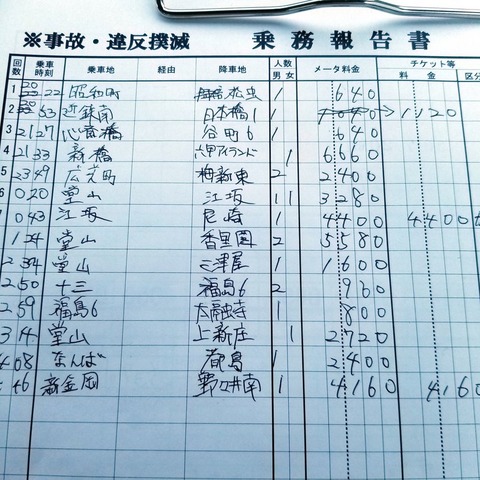 ※事故・違反撲滅 乗務報告書
回数 乗車時刻 乗車地 経由 降車地 人数 男 女 メータ料金 チケット等 料金 区分
1 20 22 昭和町 松虫 1 640
2 20 53 近鉄南 日本橋1 1 1040 → 1120
3 21 27 心斎橋 谷町6 1 640
4 21 33 新橋 六甲アイランド 1 6660
5 23 49 広元町 梅新東 2 2400
6 0 20 堂山 江坂 1 1 3280
7 0 43 江坂 尼崎 1 4400 4400
1 24 堂山 香里園 2 5580
2 34 堂山 三津屋 1 1600
2 50 十三 福島6 2 960
2 59 福島6 太融寺 1 800
3 14 堂山 上新庄 1 2720
4 08 なんば 都島 1 2400
46 新金岡 野井南 1 4160 4160